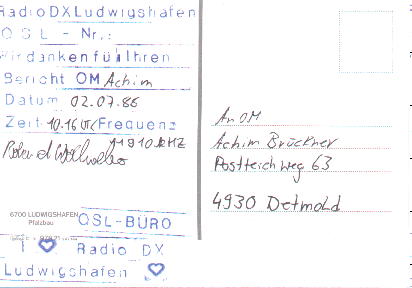 Radio DX Ludwigshafen
QSL - Nr.:
Wir danken für Ihren
Bericht OM Achim
Datum 02.07.86
Zeit 10.16 UTC Frequenz
11910 kHz
6700 LUDWIGSHAFEN
Pfalzbau
QSL-BÜRO
I ♥ Radio DX
Ludwigshafen ♥
An OM
Achim Brückner
Postteichweg 63
4930 Detmold